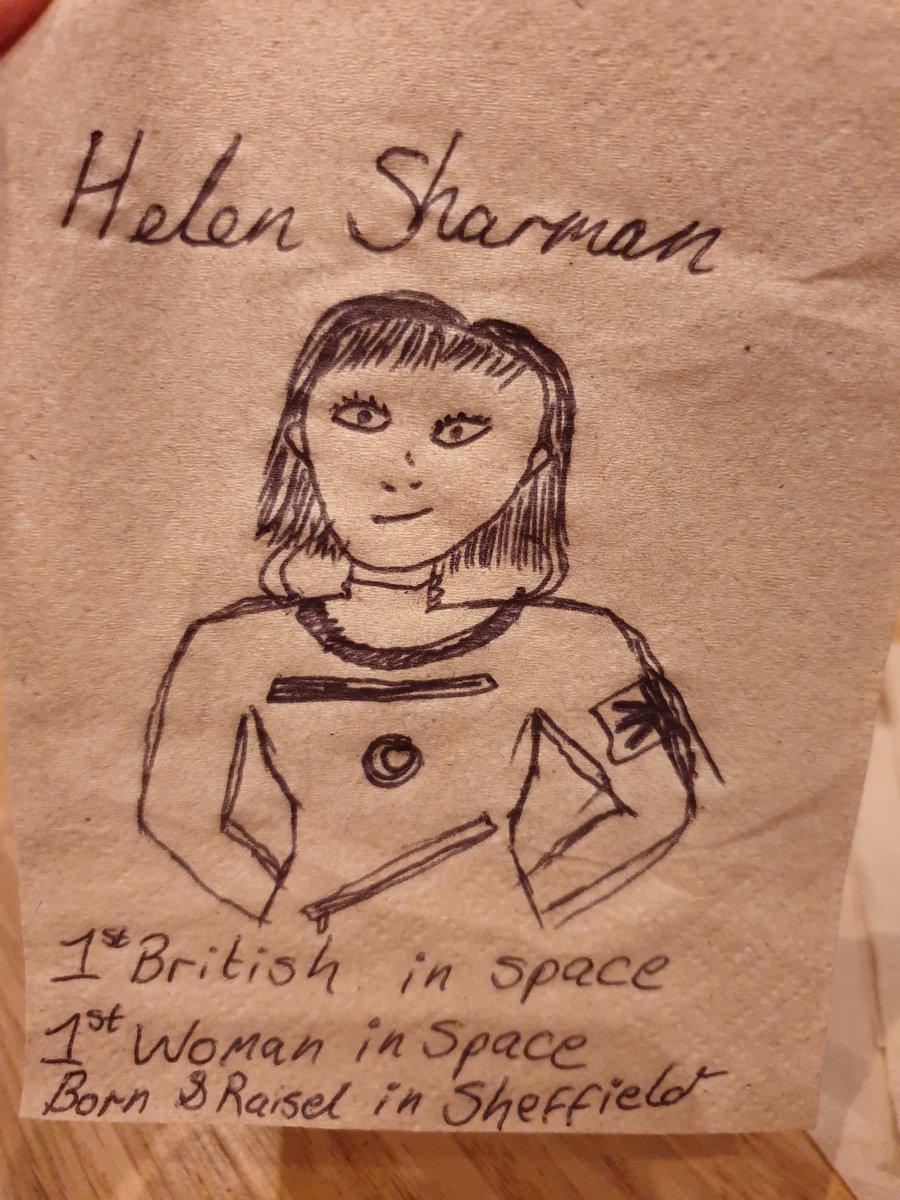 Helen Sharman
1st British in space
1st Woman in Space
Born & Raised in Sheffield